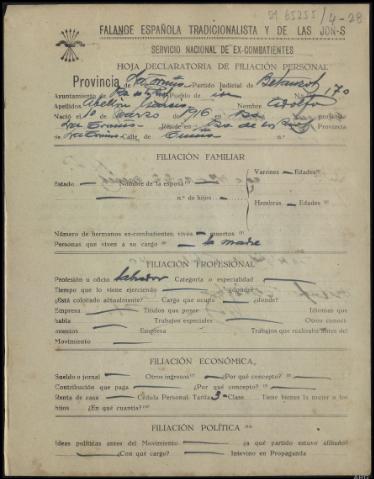 51 65255 / 4-28
FALANGE ESPAÑOLA TRADICIONALISTA Y DE LAS JON-S
SERVICIO NACIONAL DE EX-COMBATIENTES
HOJA DECLARATORIA DE FILIACIÓN PERSONAL
Provincia de La Coruña Partido Judicial de Betanzos
Ayuntamiento de Pueblo de N.º 170
Apellidos Abellón Nombre Adolfo
Nació el 10 Marzo de 1916 en provincia
La Coruña Reside en Provincia
La Coruña Calle de
FILIACIÓN FAMILIAR
Varones — Edades
Estado — Nombre de la esposa
n.º de hijos
Hembras — Edades
Número de hermanos ex-combatientes vivos — muertos
Personas que viven a su cargo la madre
FILIACIÓN PROFESIONAL
Profesión u oficio labrador Categoría o especialidad
Tiempo que lo viene ejerciendo
¿Está colocado actualmente? Cargo que ocupa ¿dónde?
Empresa Títulos que posee Idiomas que
habla Trabajos especiales Otros conoci-
mientos Empresa Trabajos que realizaba antes del
Movimiento
FILIACIÓN ECONÓMICA,
Sueldo o jornal Otros ingresos ¿Por qué concepto?
Contribución que paga ¿Por qué concepto?
Renta de casa Cédula Personal Tarifa 3ª Clase Tiene bienes la mujer o los
hijos ¿En qué cuantía?
FILIACIÓN POLÍTICA
Ideas políticas antes del Movimiento ¿a qué partido estuvo afiliado?
¿Con qué cargo? Intervino en Propaganda